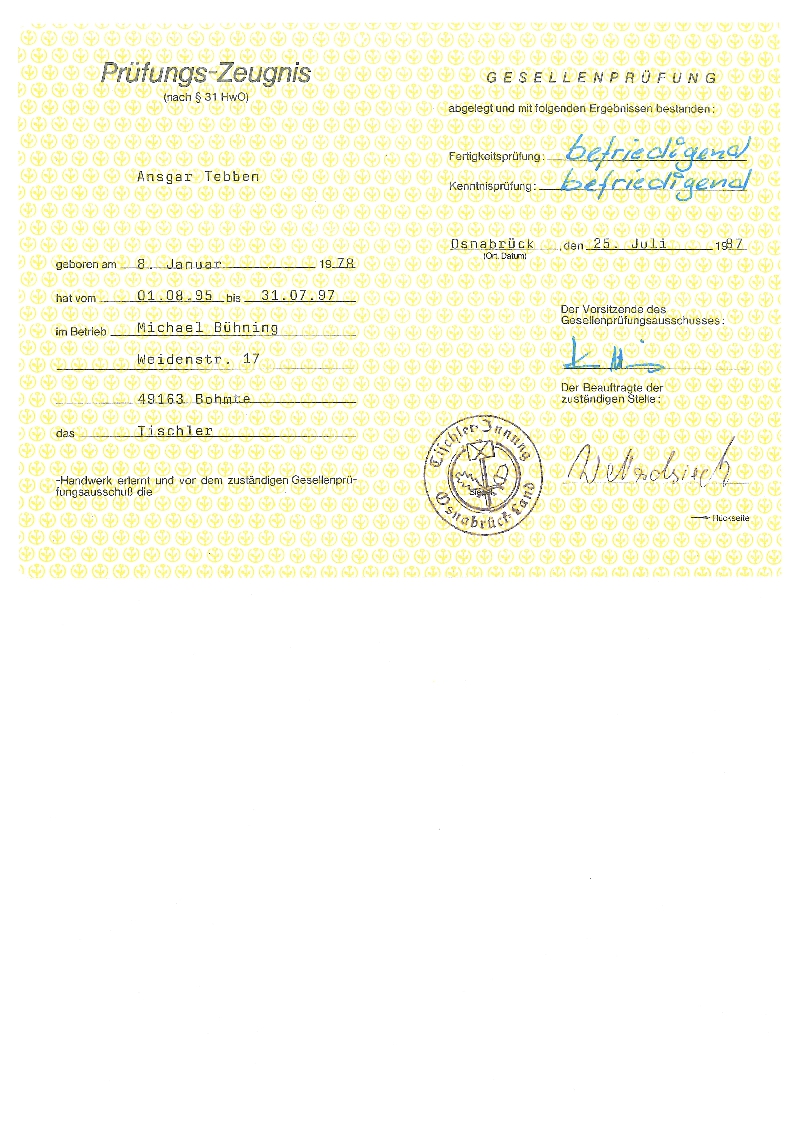 Prüfungs-Zeugnis
(nach § 31 HwO)
Ansgar Tebben
geboren am 8. Januar 1978
hat vom 01.08.95 bis 31.07.97
im Betrieb Michael Bühning
Weidenstr. 17
49163 Bohmte
das Tischler
-Handwerk erlernt und vor dem zuständigen Gesellenprü-
fungsausschuß die
GESELLENPRÜFUNG
abgelegt und mit folgenden Ergebnissen bestanden:
Fertigkeitsprüfung: befriedigend
Kenntnisprüfung: befriedigend
Osnabrück, den 25. Juli 1997
(Ort, Datum)
Der Vorsitzende des
Gesellenprüfungsausschusses:
Der Beauftragte der
zuständigen Stelle:
Tischler-Innung
Osnabrück-Land
Rückseite